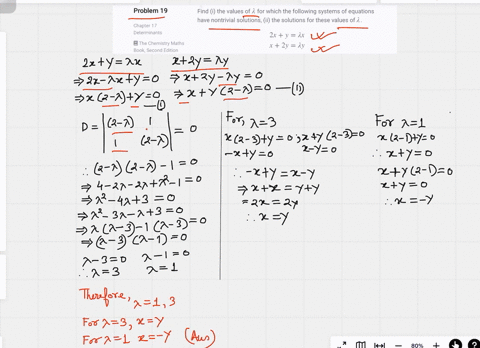 Problem 19
Chapter 17
Determinants
The Chemistry Maths
Book, Second Edition
Find (i) the values of λ for which the following systems of equations
have nontrivial solutions, (ii) the solutions for these values of λ.
2x + y = λx
x + 2y = λy
2x+y=λx
⇒ 2x-λx+y=0
⇒ x(2-λ)+y=0 —(i)
x+2y=λy
⇒ x+2y-λy=0
⇒ x+y(2-λ)=0 —(ii)
D = | (2-λ) 1 |
| 1 (2-λ) | = 0
∴ (2-λ)(2-λ)-1=0
⇒ 4-2λ-2λ+λ²-1=0
⇒ λ²-4λ+3=0
⇒ λ²-3λ-λ+3=0
⇒ λ(λ-3)-1(λ-3)=0
⇒ (λ-3)(λ-1)=0
λ-3=0 λ-1=0
∴ λ=3 λ=1
Therefore, λ=1,3
For λ=3, x=y
For λ=1 x=-y (Ans)
For, λ=3
x(2-3)+y=0; x+y(2-3)=0
-x+y=0 x-y=0
∴ -x+y=x-y
⇒ x+x=y+y
= 2x=2y
∴ x=y
For λ=1
x(2-1)+y=0
∴ x+y=0
x+y(2-1)=0
x+y=0
∴ x=-y
80%